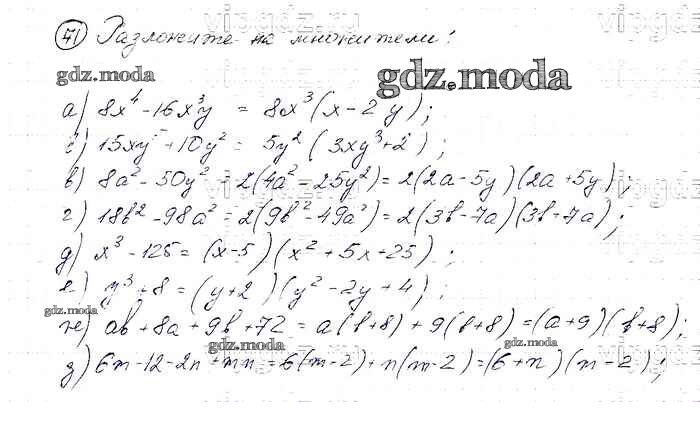 71 Разложите на множители:
gdz.moda gdz.moda
а) 8x⁴ - 16x³y = 8x³(x - 2y);
б) 15xy⁵ + 10y² = 5y²(3xy³ + 2);
в) 8a² - 50y² = 2(4a² - 25y²) = 2(2a - 5y)(2a + 5y);
г) 18b² - 98a² = 2(9b² - 49a²) = 2(3b - 7a)(3b + 7a);
д) x³ - 125 = (x - 5)(x² + 5x + 25);
е) y³ + 8 = (y + 2)(y² - 2y + 4);
gdz.moda
ж) ab + 8a + 9b + 72 = a(b + 8) + 9(b + 8) = (a + 9)(b + 8);
gdz.moda gdz.moda
з) 6m - 12 - 2n + mn = 6(m - 2) + n(m - 2) = (6 + n)(m - 2);